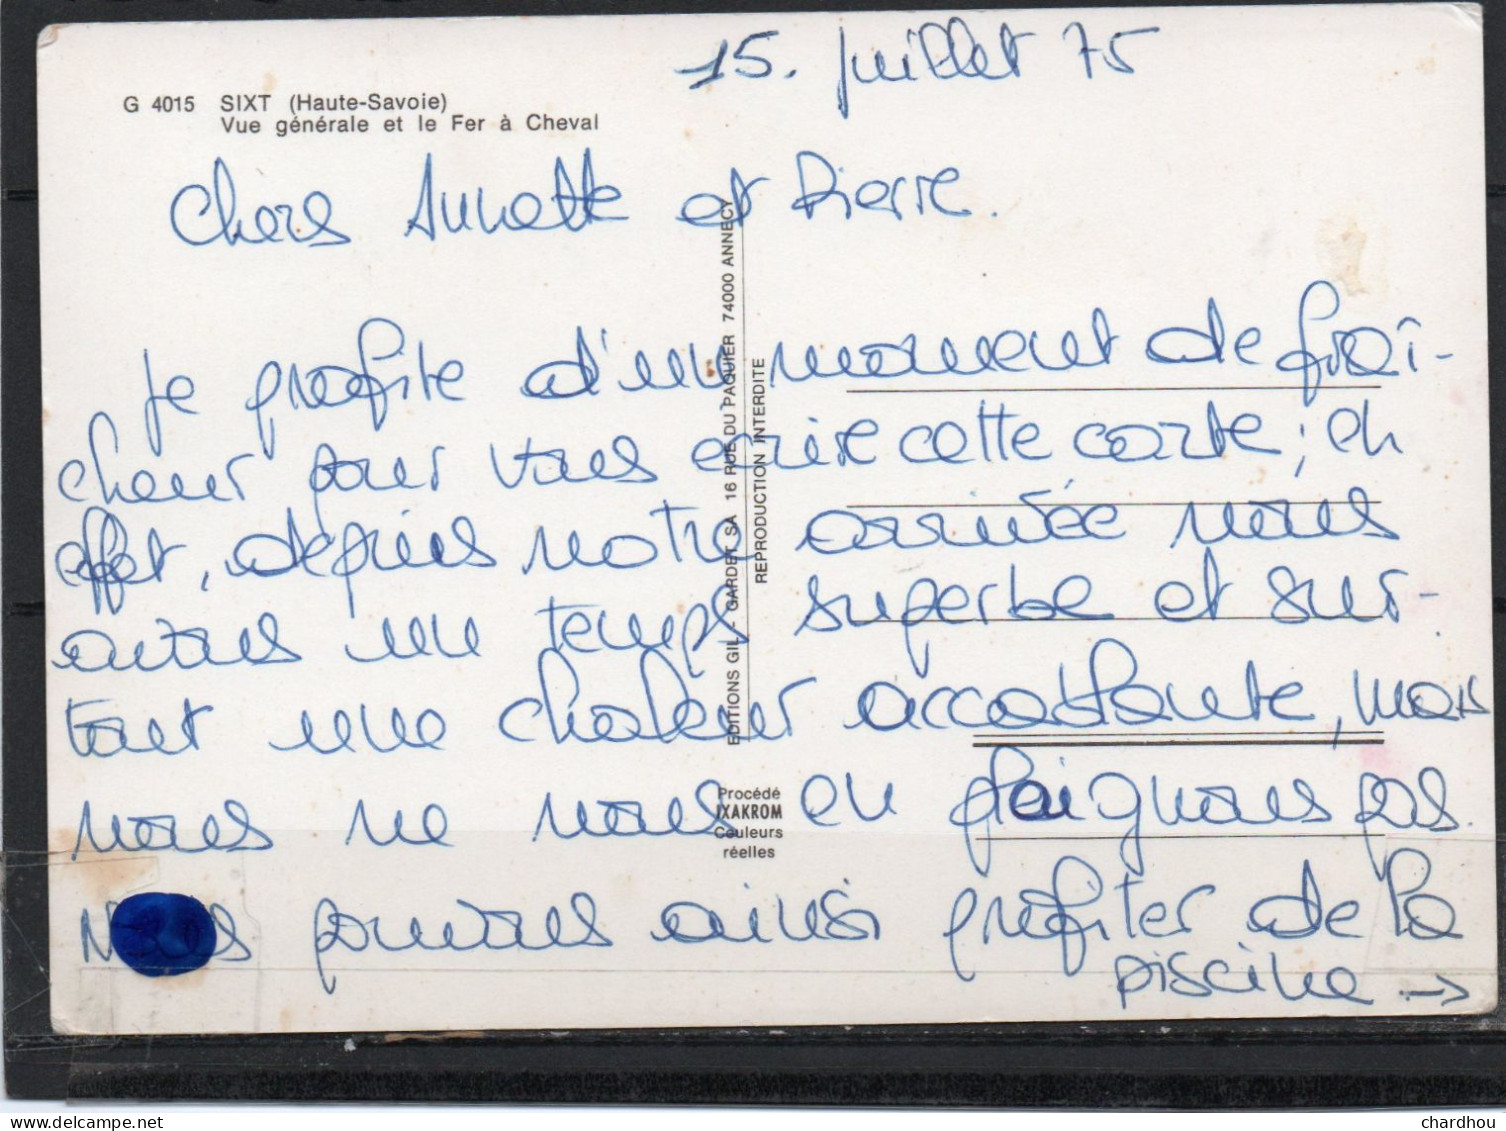 15. juillet 75
G 4015 SIXT (Haute-Savoie)
Vue générale et le Fer à Cheval
Chers Annette et Pierre.
Je profite d'un moment de fraî-
cheur pour vous ecrire cette carte; en
effet, depuis notre arrivée nous
avons un temps superbe et sur-
tout une chaleur accablante, mais
nous ne nous en plaignons pas.
Nous pouvons ainsi profiter de la
piscine →
EDITIONS GIL - GARDET SA 16 RUE DU PAQUIER 74000 ANNECY
REPRODUCTION INTERDITE
Procédé
IXAKROM
Couleurs
réelles
delcampe.net
chardhou